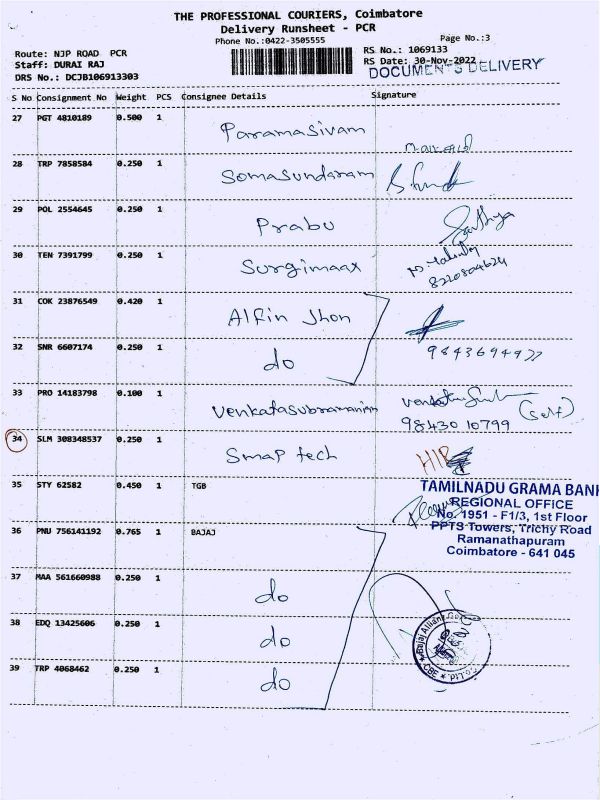 THE PROFESSIONAL COURIERS, Coimbatore
Delivery Runsheet - PCR
Phone No.:0422-3505555
Page No.:3
Route: NJP ROAD PCR
RS No.: 1069133
Staff: DURAI RAJ
RS Date: 30-Nov-2022
DOCUMENTS DELIVERY
DRS No.: DCJB106913303
S No Consignment No Weight PCS Consignee Details Signature
27 PGT 4810189 0.500 1 Paramasivam
28 TRP 7858584 0.250 1 Somasundaram
29 POL 2554645 0.250 1 Prabu Sathya
30 TEN 7391799 0.250 1 Surgimaax
31 COK 23876549 0.420 1 Alfin Jhon
32 SNR 6607174 0.250 1 do
33 PRO 14183798 0.100 1 Venkatasubramanian (Self)
98430 10799
34 SLM 308348537 0.250 1 Smap tech
35 STY 62582 0.450 1 TGB
TAMILNADU GRAMA BANK
REGIONAL OFFICE
No. 1951 - F1/3, 1st Floor
PPTS Towers, Trichy Road
Ramanathapuram
Coimbatore - 641 045
36 PNU 756141192 0.765 1 BAJAJ
37 MAA 561660988 0.250 1 do
38 EDQ 13425606 0.250 1 do
39 TRP 4068462 0.250 1 do